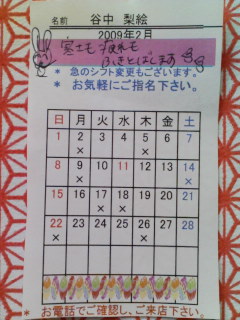 名前 谷中 梨絵
2009年2月
寒さも
ふきとばします
* 急のシフト変更もございます。
* お気軽にご指名下さい。
日 月 火 水 木 金 土
1 2 3 4 5 6 7
× × ×
8 9 10 11 12 13 14
× ×
15 16 17 18 19 20 21
× ×
22 23 24 25 26 27 28
× ×
* お電話でご確認し、ご来店下さい。